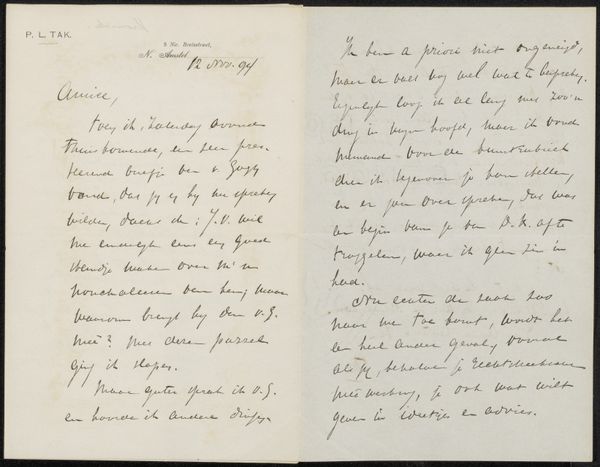 P. L. TAK.
5 Nic. Beetsstraat,
N. Amstel
12 Nov. 94
Amice,
Toen ik, Zaterdag avond
thuiskomende, een zeer pres-
seerend briefje van v. Gogh
vond, dat jij bij me spreken
wilde, dacht ik: J.V. wil
me eens een goed
standje maken over m'n
nonchalance van hem; maar
waarom brengt hij dan v. G.
mee? Met deze puzzel
ging ik slapen.
Maar gister sprak ik v. G.
en hoorde ik andere dingen.
Ik ben a priori niet ongeneigd,
maar er valt nog wel wat te bespreken.
Eigenlijk loop ik al lang met zoo'n
ding in mijn hoofd, maar ik vond
niemand voor de kunstkritiek
dien ik tegenover je kon stellen,
en er jou over spreken, dat was
een begin van je van D. K. af te
troggelen, waar ik geen zin in
had.
Nu echter de zaak zoo
naar me toe komt, wordt het
een heel ander geval, vooral
als jij, behalve je
medewerking, je ook wat wilt
geven in ideetjes en advies.